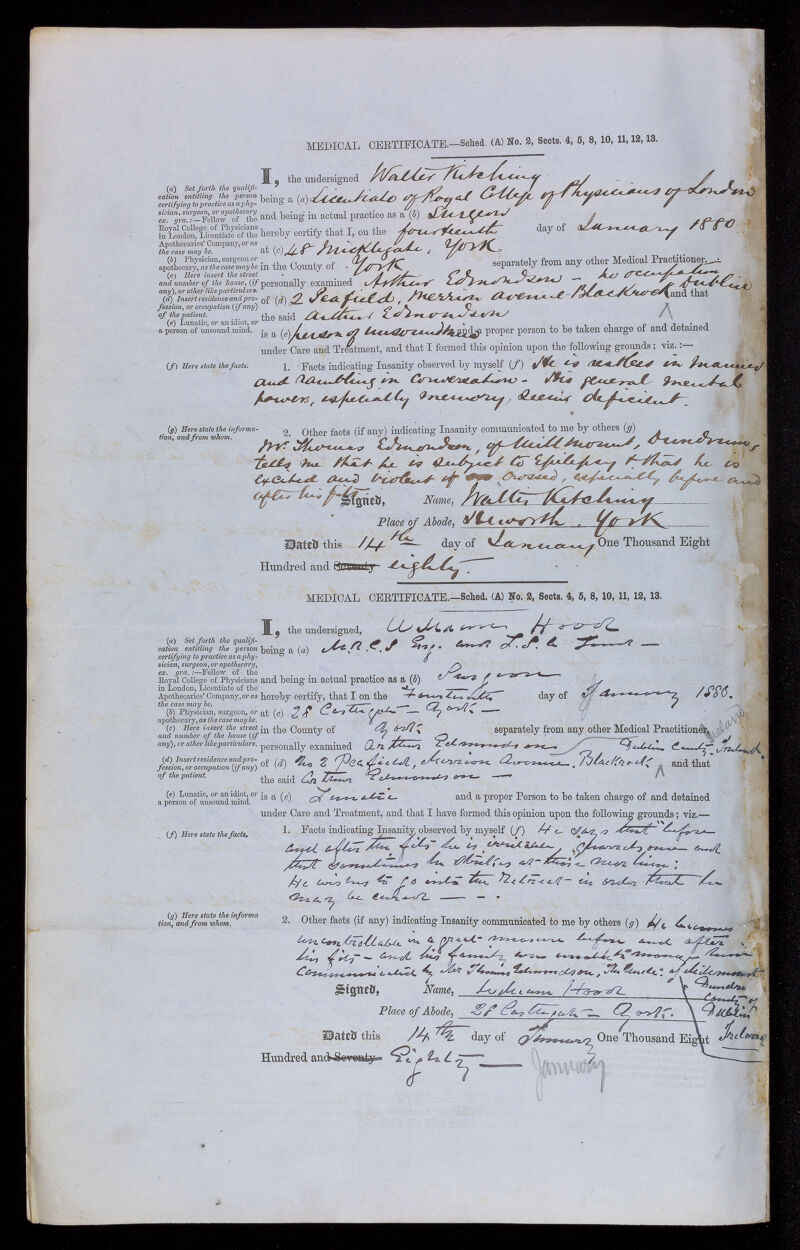 MEDICAL CERTIFICATE.—Sched. (A) No. 2, Sects. 4, 5, 8, 10, 11, 12, 13.
I, the undersigned Walter Kitching
being a (a) Licentiate of Royal College of Physicians of London
and being in actual practice as a (b) Surgeon
hereby certify that I, on the fourteenth day of January 1880
at (c) 48 Micklegate, York
in the County of York separately from any other Medical Practitioner,
personally examined Arthur Edmondson - no occupation
of (d) 2 Peafield, Merrion Avenue Blackrock Dublin and that
the said Arthur Edmondson
is a (e) person of unsound mind and a proper person to be taken charge of and detained
under Care and Treatment, and that I formed this opinion upon the following grounds; viz.:—
1. Facts indicating Insanity observed by myself (f) He is restless in manner
and rambling in conversation - His general mental
powers, especially memory, seems deficient.
2. Other facts (if any) indicating Insanity communicated to me by others (g)
Mr. Thomas Edmondson, of Mill Mount, Dundrum,
tells me that he is subject to Epilepsy & that he is
excited and violent if crossed, especially before and
after his fits
Signed, Name, Walter Kitching
Place of Abode, Heworth. York
Dated this 14th day of January One Thousand Eight
Hundred and Seventy eighty.
(a) Set forth the qualifi-
cation entitling the person
certifying to practice as a phy-
sician, surgeon, or apothecary
ex. gra.:—Fellow of the
Royal College of Physicians
in London, Licentiate of the
Apothecaries' Company, or as
the case may be.
(b) Physician, surgeon or
apothecary, as the case may be
(c) Here insert the street
and number of the house, (if
any), or other like particulars.
(d) Insert residence and pro-
fession, or occupation (if any)
of the patient.
(e) Lunatic, or an idiot, or
a person of unsound mind.
(f) Here state the facts.
(g) Here state the informa-
tion, and from whom.
MEDICAL CERTIFICATE.—Sched. (A) No. 2, Sects. 4, 5, 8, 10, 11, 12, 13.
I, the undersigned, William Hood
being a (a) M.R.C.S Eng. and L.S.A Lond —
and being in actual practice as a (b) Surgeon
hereby certify, that I on the Fourteenth day of January 1880.
at (c) 28 Castlegate - York. —
in the County of York separately from any other Medical Practitioner,
personally examined Arthur Edmondson Dublin County. Ireland. Ireland
of (d) No 2 Peafield, Merrion Avenue. Blackrock and that
the said Arthur Edmondson —
is a (e) Lunatic and a proper Person to be taken charge of and detained
under Care and Treatment, and that I have formed this opinion upon the following grounds; viz.—
1. Facts indicating Insanity observed by myself (f) He says that before
and after the fits he is irritable, quarrelsome and
that sometimes he strikes at those near him:
He wishes to go into the Retreat in order that he
may be cured — - - .
2. Other facts (if any) indicating Insanity communicated to me by others (g) He becomes
uncontrollable in a great measure before and after
his fits - and his family are unable to manage him
communicated by Mr Thomas Edmondson, The Uncle: of
Dundrum
County of
Dublin
Ireland
Signed, Name, William Hood
Place of Abode, 28 Castlegate - York.
Dated this 14th day of January One Thousand Eight
Hundred and Seventy Eighty —
January
(a) Set forth the qualifi-
cation entitling the person
certifying to practice as a phy-
sician, surgeon, or apothecary,
ex. gra.:—Fellow of the
Royal College of Physicians
in London, Licentiate of the
Apothecaries' Company, or as
the case may be.
(b) Physician, surgeon, or
apothecary, as the case may be.
(c) Here insert the street
and number of the house (if
any), or other like particulars.
(d) Insert residence and pro-
fession, or occupation (if any)
of the patient.
(e) Lunatic, or an idiot, or
a person of unsound mind.
(f) Here state the facts.
(g) Here state the informa
tion, and from whom.